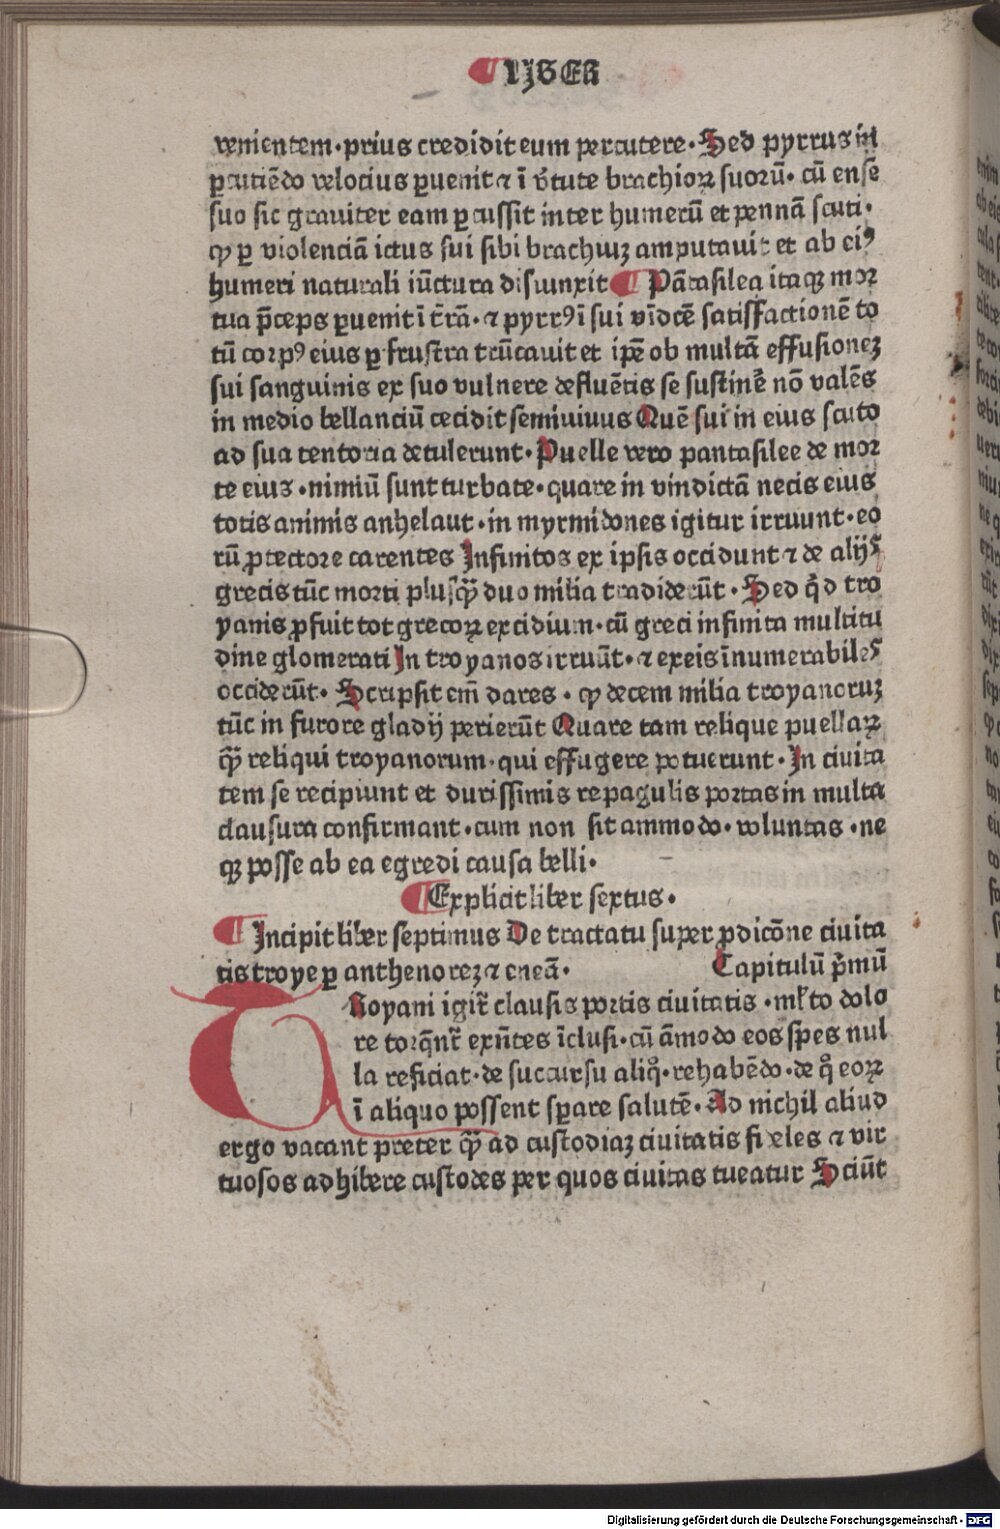 ¶ LIBER
venientem·prius credidit eum percutere·Sed pyrrus in
ꝑcutiēdo velocius ꝑuenit ⁊ ī v̄tute brachioꝝ suorū·cū ense
suo sic grauiter eam ꝑcussit inter humerū et pennā scuti·
ꝙ ꝑ violenciā ictus sui sibi brachiuꝫ amputauit et ab eiꝰ
humeri naturali iūctura disiunxit ¶ Pātasilea itaqꝫ mor
tua p̄ceps ꝑuenit ī t̄rā·⁊ pyrrꝰ ī sui vīdcē satisfactionē to
tū corpꝰ eius ꝑ frustra trūcauit et ip̄e ob multā effusioneꝫ
sui sanguinis ex suo vulnere defluētis se sustinē nō valēs
in medio bellanciū cecidit semiuiuus Quē sui in eius scuto
ad sua tentoria detulerunt·Puelle vero pantasilee de mor
te eius·nimiū sunt turbate·quare in vindictā necis eius
totis animis anhelaut·in myrmidones igitur irruunt·eo
rū ꝓtectore carentes Infinitos ex ipsis occidunt ⁊ de alijs
grecis tūc morti plusqꝫ̄ duo milia tradiderūt·Sed qͥd tro
yanis ꝓfuit tot grecoꝝ excidium·cū greci infinita multitu
dine glomerati In troyanos irruūt·⁊ ex eis īnumerabiles
occiderūt·Scripsit em̄ dares·ꝙ decem milia troyanoruꝫ
tūc in furore gladij perierūt Quare tam relique puellaꝝ
qꝫ̄ reliqui troyanorum·qui effugere potuerunt·In ciuita
tem se recipiunt et durissimis repagulis portas in multa
clausura confirmant·cum non sit ammodo·voluntas·ne
qꝫ posse ab ea egredi causa belli·
¶ Explicit liber sextus·
¶ Incipit liber septimus De tractatu super ꝓdicōne ciuita
tis troye ꝑ anthenoreꝫ ⁊ eneā· Capitulū p̄mū
TRoyani igit᷑ clausis portis ciuitatis·ml̄to dolo
re torq̄nt᷑ exn̄tes īclusi·cū āmodo eos spes nul
la reficiat·de succursu aliqͦ·rehabēdo·de qͦ eoꝝ
ī aliquo possent sꝑare salutē·Ad nichil aliud
ergo vacant preter qꝫ̄ ad custodiaꝫ ciuitatis fideles ⁊ vir
tuosos adhibere custodes per quos ciuitas tueatur Sciūt
Digitalisierung gefördert durch die Deutsche Forschungsgemeinschaft - DFG